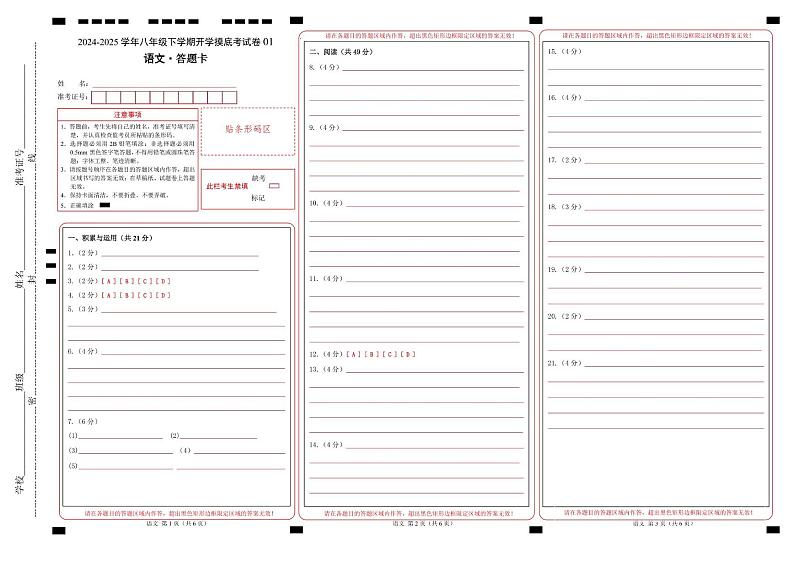 2024-2025 学年八年级下学期开学摸底考试卷 01
语文·答题卡
姓 名：
准考证号：
注意事项
1．答题前，考生先将自己的姓名，准考证号填写清
楚，并认真检查监考员所粘贴的条形码。
2．选择题必须用 2B 铅笔填涂；非选择题必须用
0.5mm 黑色签字笔答题，不得用铅笔或圆珠笔答
题；字体工整、笔迹清晰。
3．请按题号顺序在各题目的答题区域内作答，超出
区域书写的答案无效；在草稿纸、试题卷上答题
无效。
4．保持卡面清洁，不要折叠、不要弄破。
5．正确填涂
贴条形码区
此栏考生禁填
缺考
标记
准考证号
姓名
班级
学校
线
封
密
一、积累与运用（共 21 分）
1.（2 分）
2.（2 分）
3.（2 分）[ A ] [ B ] [ C ] [ D ]
4.（2 分）[ A ] [ B ] [ C ] [ D ]
5.（3 分）
6.（4 分）
7.（6 分）
(1) (2)
(3) （4）
(5)
请在各题目的答题区域内作答，超出黑色矩形边框限定区域的答案无效！
语文 第 1 页（共 6 页）
请在各题目的答题区域内作答，超出黑色矩形边框限定区域的答案无效！
二、阅读（共 49 分）
8.（4 分）
9.（4 分）
10.（4 分）
11.（4 分）
12.（4 分）[ A ] [ B ] [ C ] [ D ]
13.（4 分）
14.（4 分）
请在各题目的答题区域内作答，超出黑色矩形边框限定区域的答案无效！
语文 第 2 页（共 6 页）
请在各题目的答题区域内作答，超出黑色矩形边框限定区域的答案无效！
15.（4 分）
16.（4 分）
17.（2 分）
18.（3 分）
19.（2 分）
20.（2 分）
21.（4 分）
请在各题目的答题区域内作答，超出黑色矩形边框限定区域的答案无效！
语文 第 3 页（共 6 页）